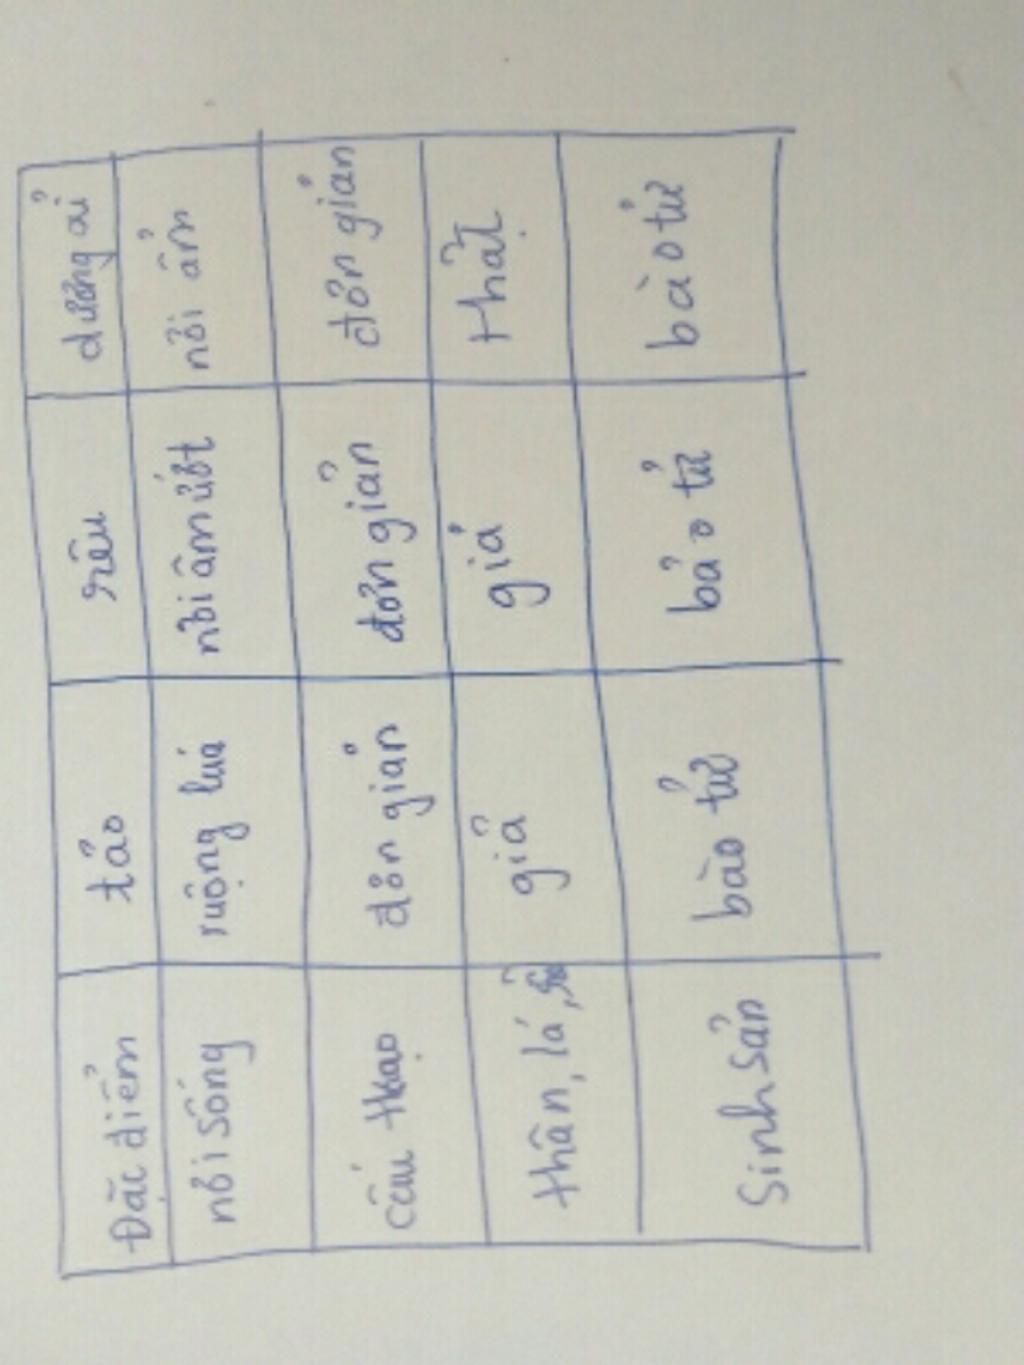 Đặc điểm tảo rêu dương xỉ
nơi sống ruộng lúa nơi ẩm ướt nơi ẩm
cấu tạo đơn giản đơn giản đơn giản
thân, lá, rễ giả giả thật
Sinh sản bào tử bào tử bào tử